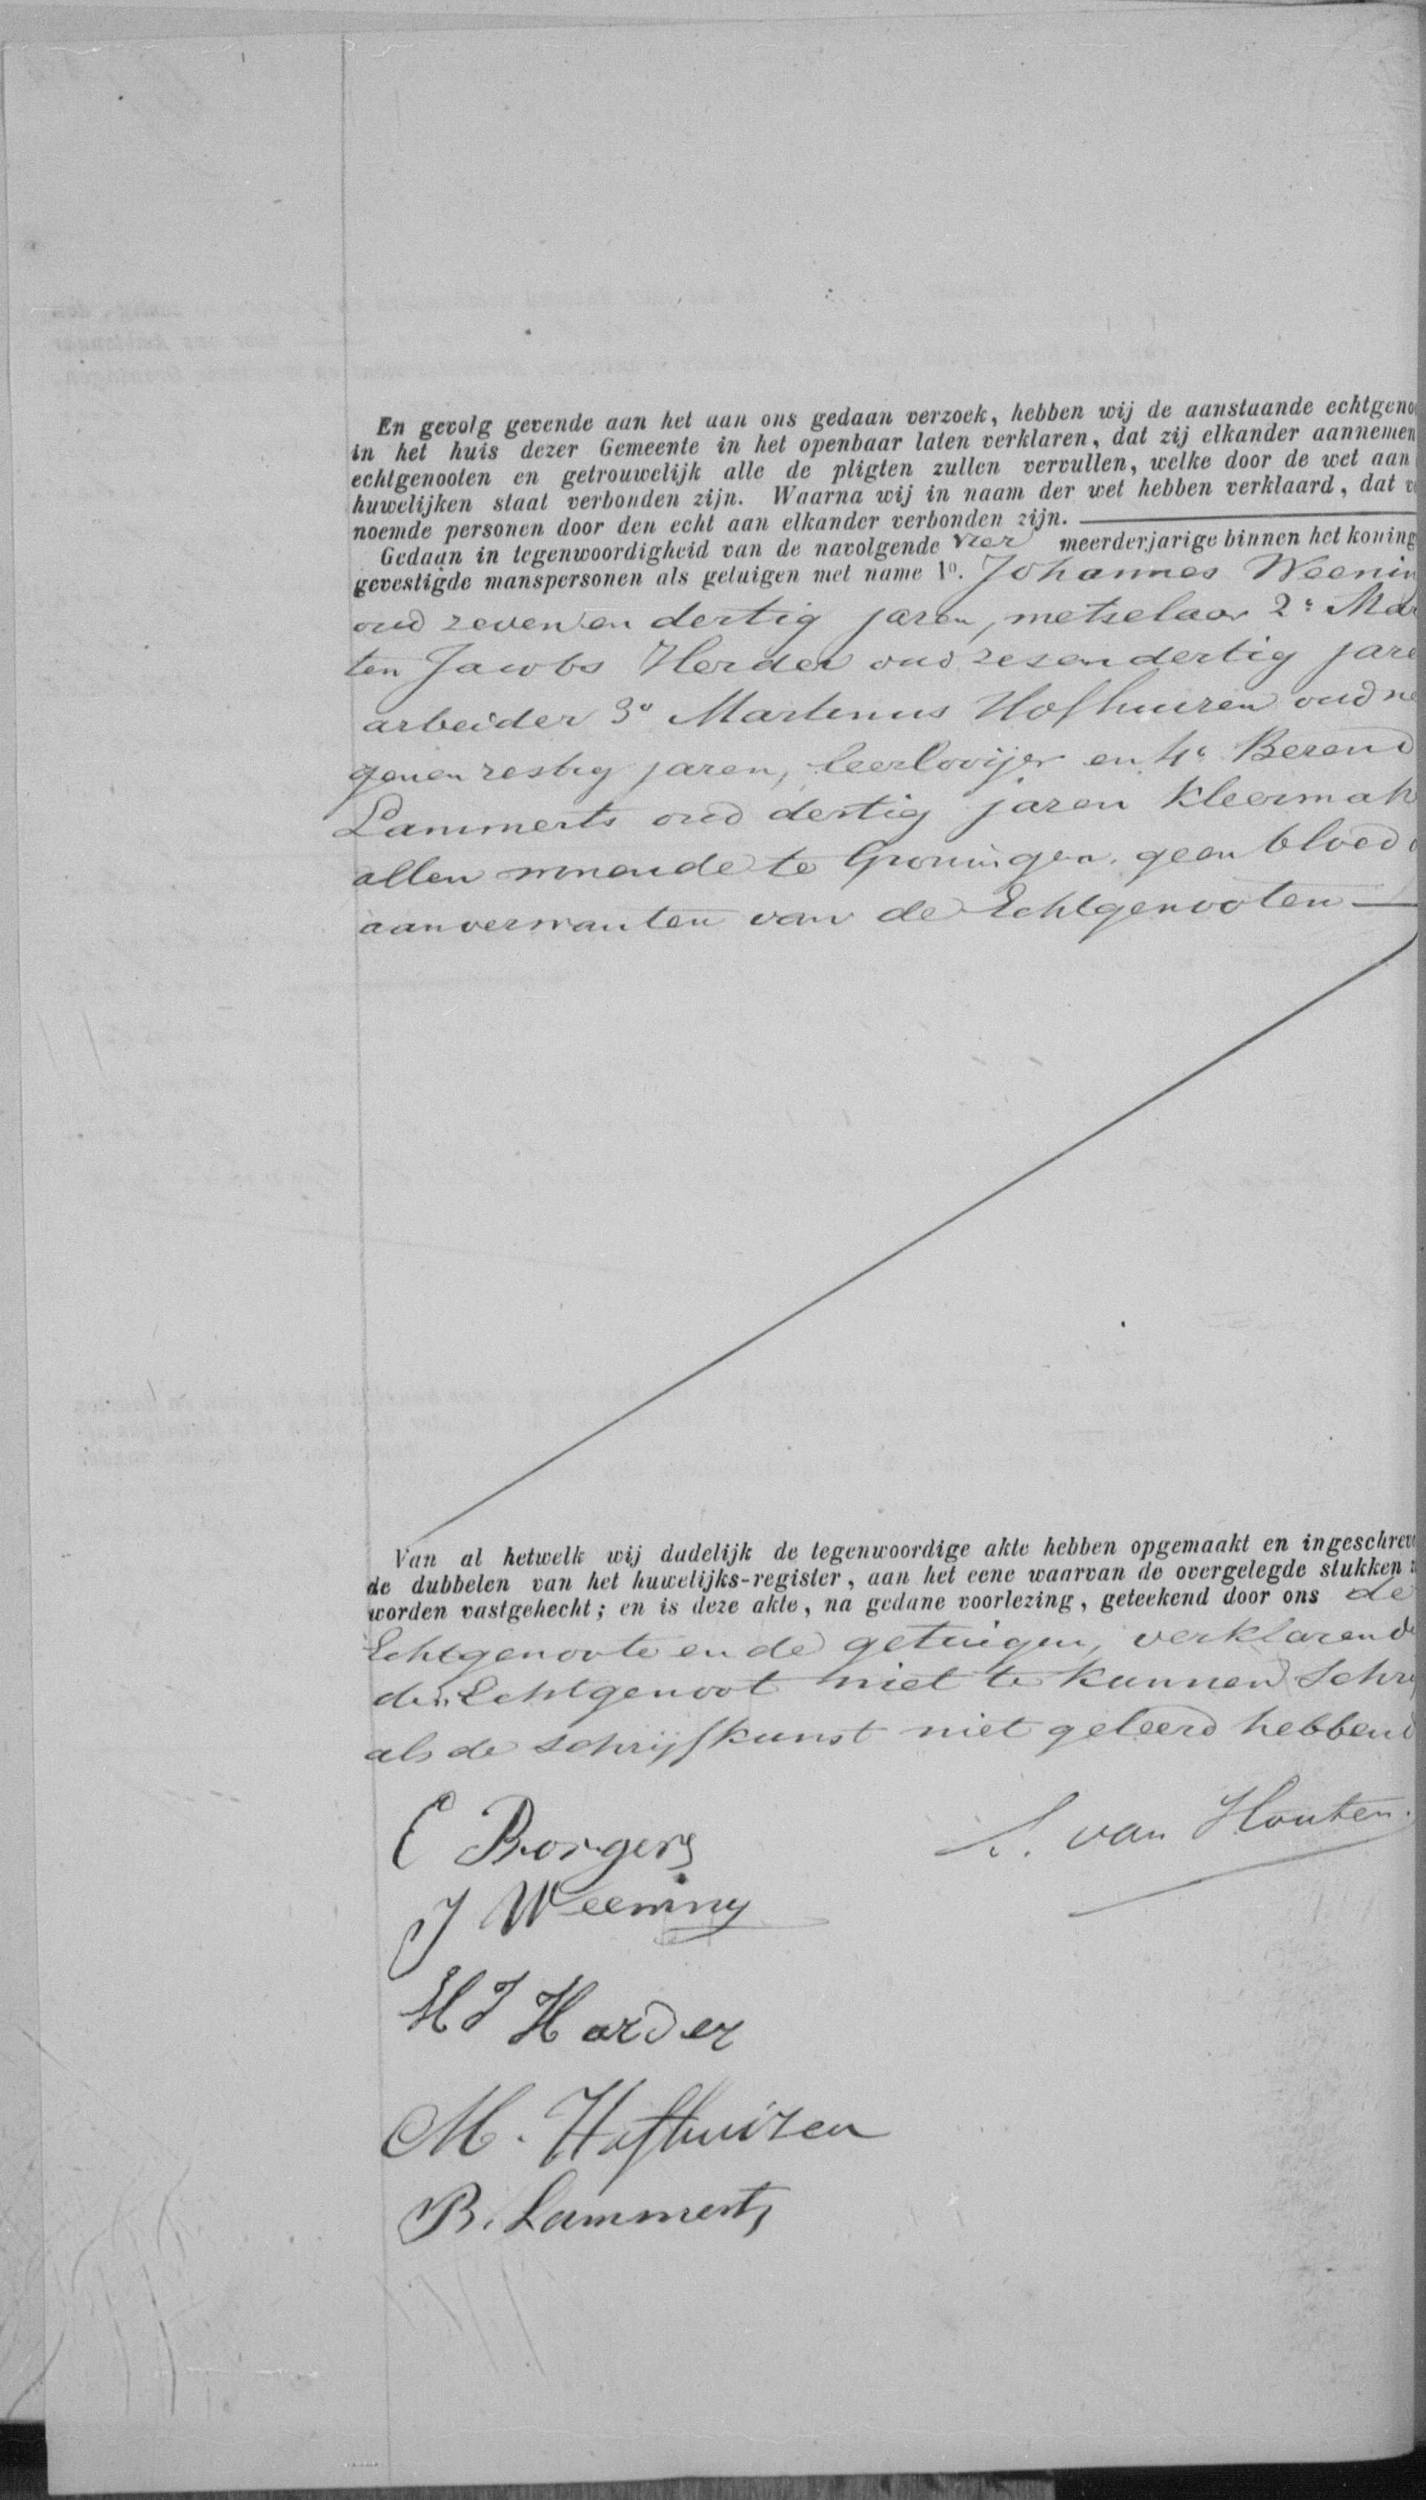 En gevolg gevende aan het aan ons gedaan verzoek, hebben wij de aanstaande echtgeno
in het huis dezer Gemeente in het openbaar laten verklaren, dat zij elkander aannemen
echtgenooten en getrouwelijk alle de pligten zullen vervullen, welke door de wet aan
huwelijken staat verbonden zijn. Waarna wij in naam der wet hebben verklaard, dat v
noemde personen door den echt aan elkander verbonden zijn.
Gedaan in tegenwoordigheid van de navolgende vier meerderjarige binnen het koning
gevestigde manspersonen als getuigen met name 1º. Johannes Weenin
oud zeven en dertig jaren, metselaar 2º Mar
ten Jacobs Herder oud zesendertig jare
arbeider 3º Martinus Hofhuizen oud ne
genenzestig jaren, leerlooijer en 4º Berend
Lammerts oud dertig jaren kleermak
allen wonende te Groningen, geen bloed
aanverwanten van de Echtgenooten
Van al hetwelk wij dadelijk de tegenwoordige akte hebben opgemaakt en ingeschrev
de dubbelen van het huwelijks-register, aan het eene waarvan de overgelegde stukken
worden vastgehecht; en is deze akte, na gedane voorlezing, geteekend door ons de
Echtgenoote en de getuigen, verklarende
den Echtgenoot niet te kunnen schrij
als de schrijfkunst niet geleerd hebbend
E Borgers
S. van Houten.
J Weening
M J Harder
M. Hofhuizen
B. Lammerts